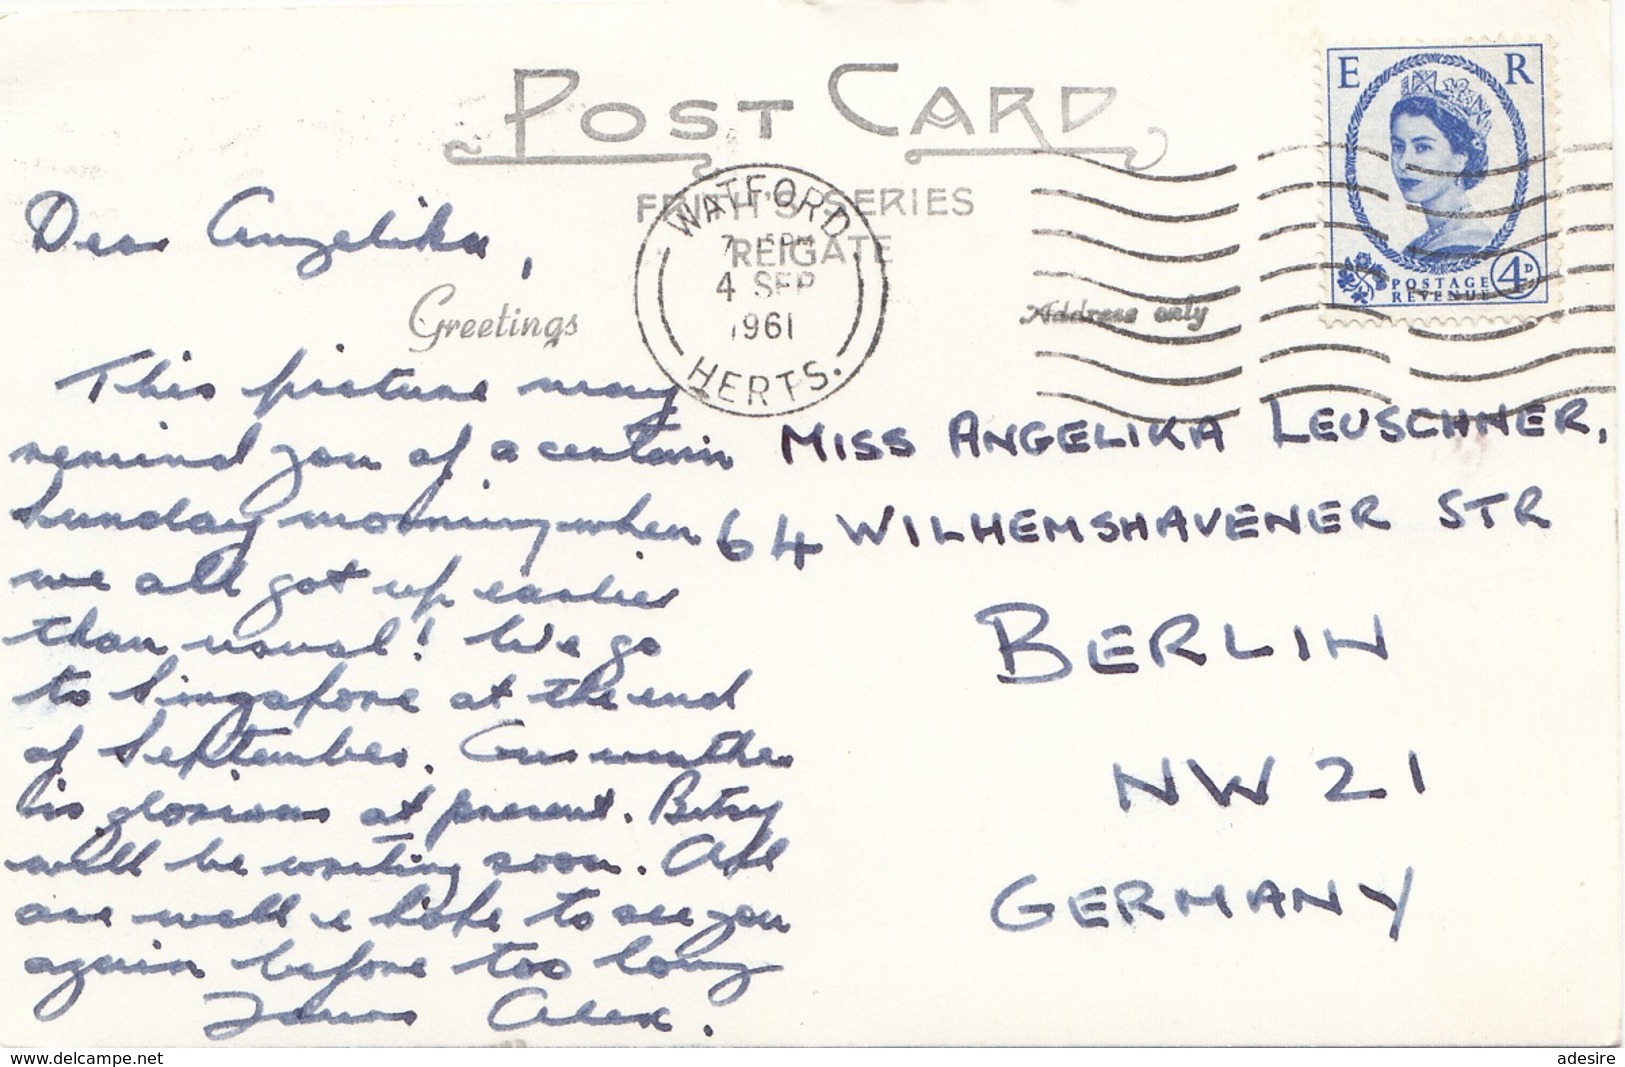 POST CARD
FRITH'S SERIES
REIGATE
WATFORD
7 PM
4 SEP
1961
HERTS.
E R
POSTAGE
REVENUE
4D
Greetings
Address only
Dear Angelika,
This picture may
remind you of a certain
Sunday morning when
we all got up earlier
than usual! We go
to Singapore at the end
of September. Our weather
is glorious at present. Betsy
will be writing soon. All
are well & hope to see you
again before too long
Yours Alex.
MISS ANGELIKA LEUSCHNER,
64 WILHEMSHAVENER STR
BERLIN
NW 21
GERMANY
www.delcampe.net
adesire